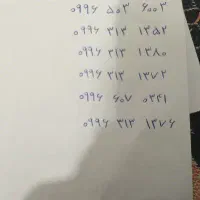 ۰۹۹۶ ۵۰۳ ۶۰۰۲
۰۹۹۶ ۳۱۳ ۱۳۵۲
۰۹۹۶ ۳۱۳ ۱۳۸۰
۰۹۹۶ ۳۱۳ ۱۳۷۲
۰۹۹۶ ۶۰۷ ۰۳۴۱
۰۹۹۶ ۳۱۳ ۱۳۷۶